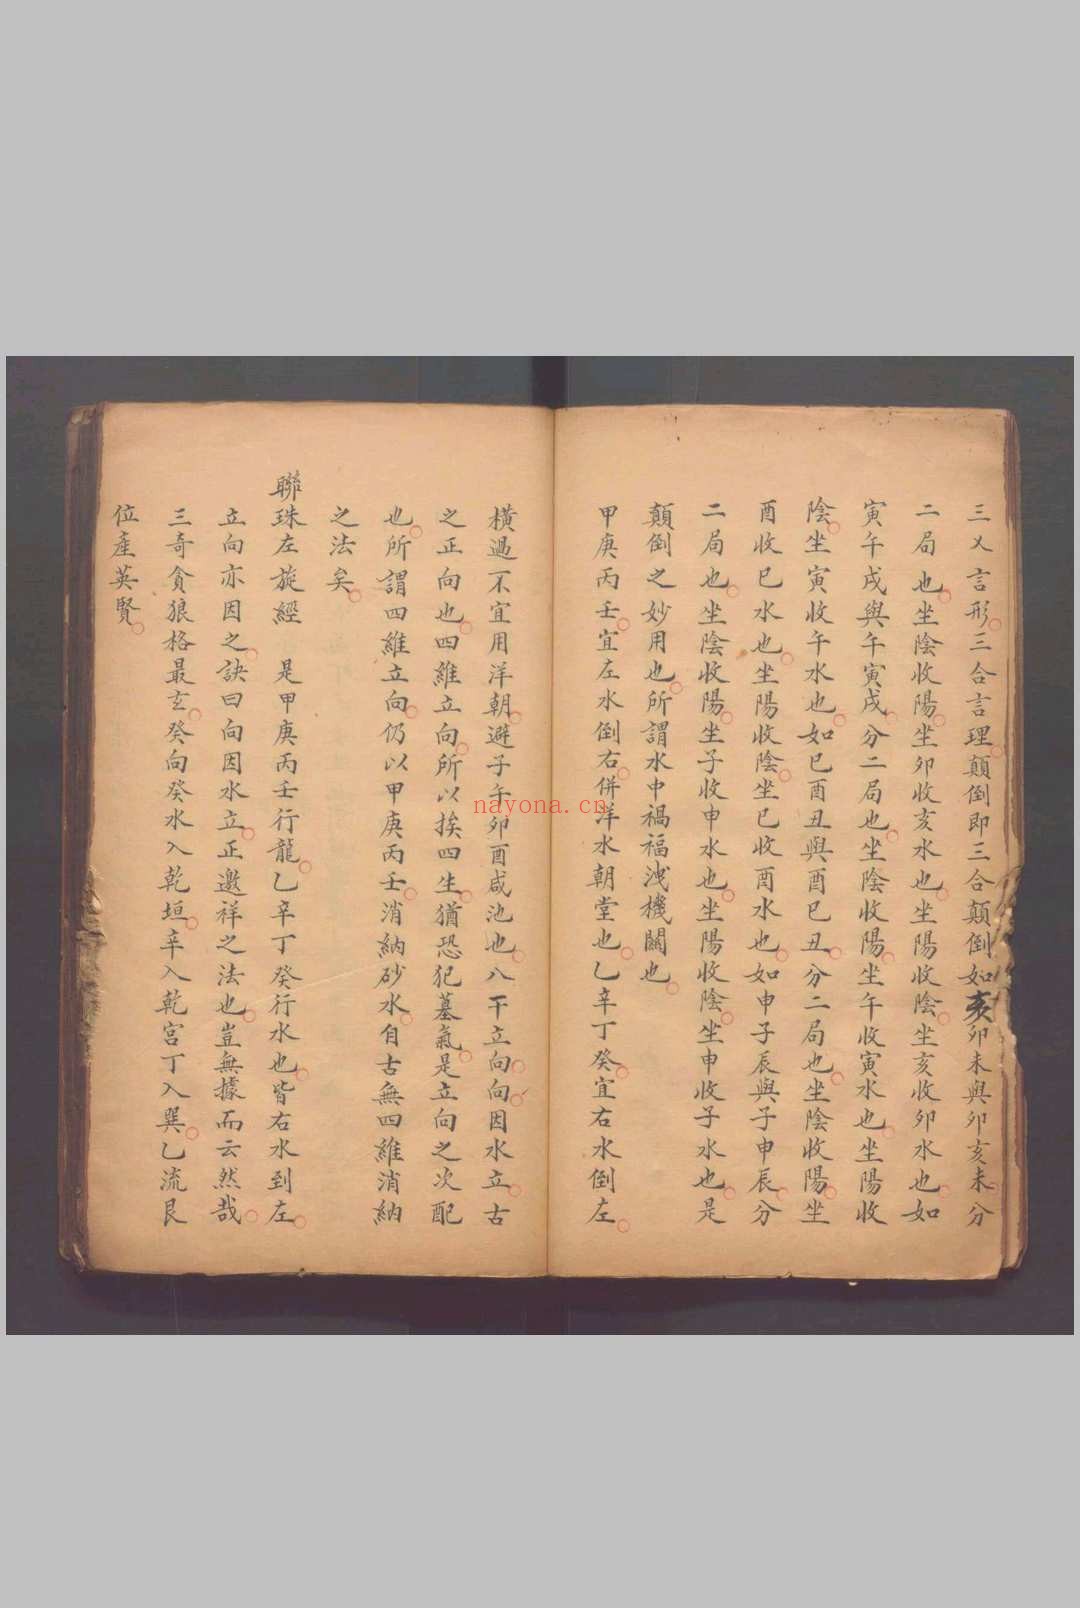 三乂言形三合言理顛倒即三合顛倒如亥卯未與卯亥未分
二局也坐陰收陽坐卯收亥水也坐陽收陰坐亥收卯水也如
寅午戌與午寅戌分二局也坐陰收陽坐午收寅水也坐陽收
陰坐寅收午水也如巳酉丑與酉巳丑分二局也坐陰收陽坐
酉收巳水也坐陽收陰坐巳收酉水也如申子辰與子申辰分
二局也坐陰收陽坐子收申水也坐陽收陰坐申收子水也是
顛倒之妙用也所謂水中禍福洩機關也
甲庚丙壬宜左水倒右併洋水朝堂也乙辛丁癸宜右水倒左
橫過不宜用洋朝避子午卯酉咸池也八干立向向因水立古
之正向也四維立向所以挨四生猶恐犯墓氣是立向之次配
也所謂四維立向仍以甲庚丙壬消納砂水自古無四維消納
之法矣
聯珠左旋經 是甲庚丙壬行龍乙辛丁癸行水也皆右水到左
立向亦因之訣曰向因水立正邀祥之法也豈無據而云然哉
三奇貪狼格最玄癸向癸水入乾垣辛入乾宮丁入巽乙流艮
位產英賢
nayona.cn